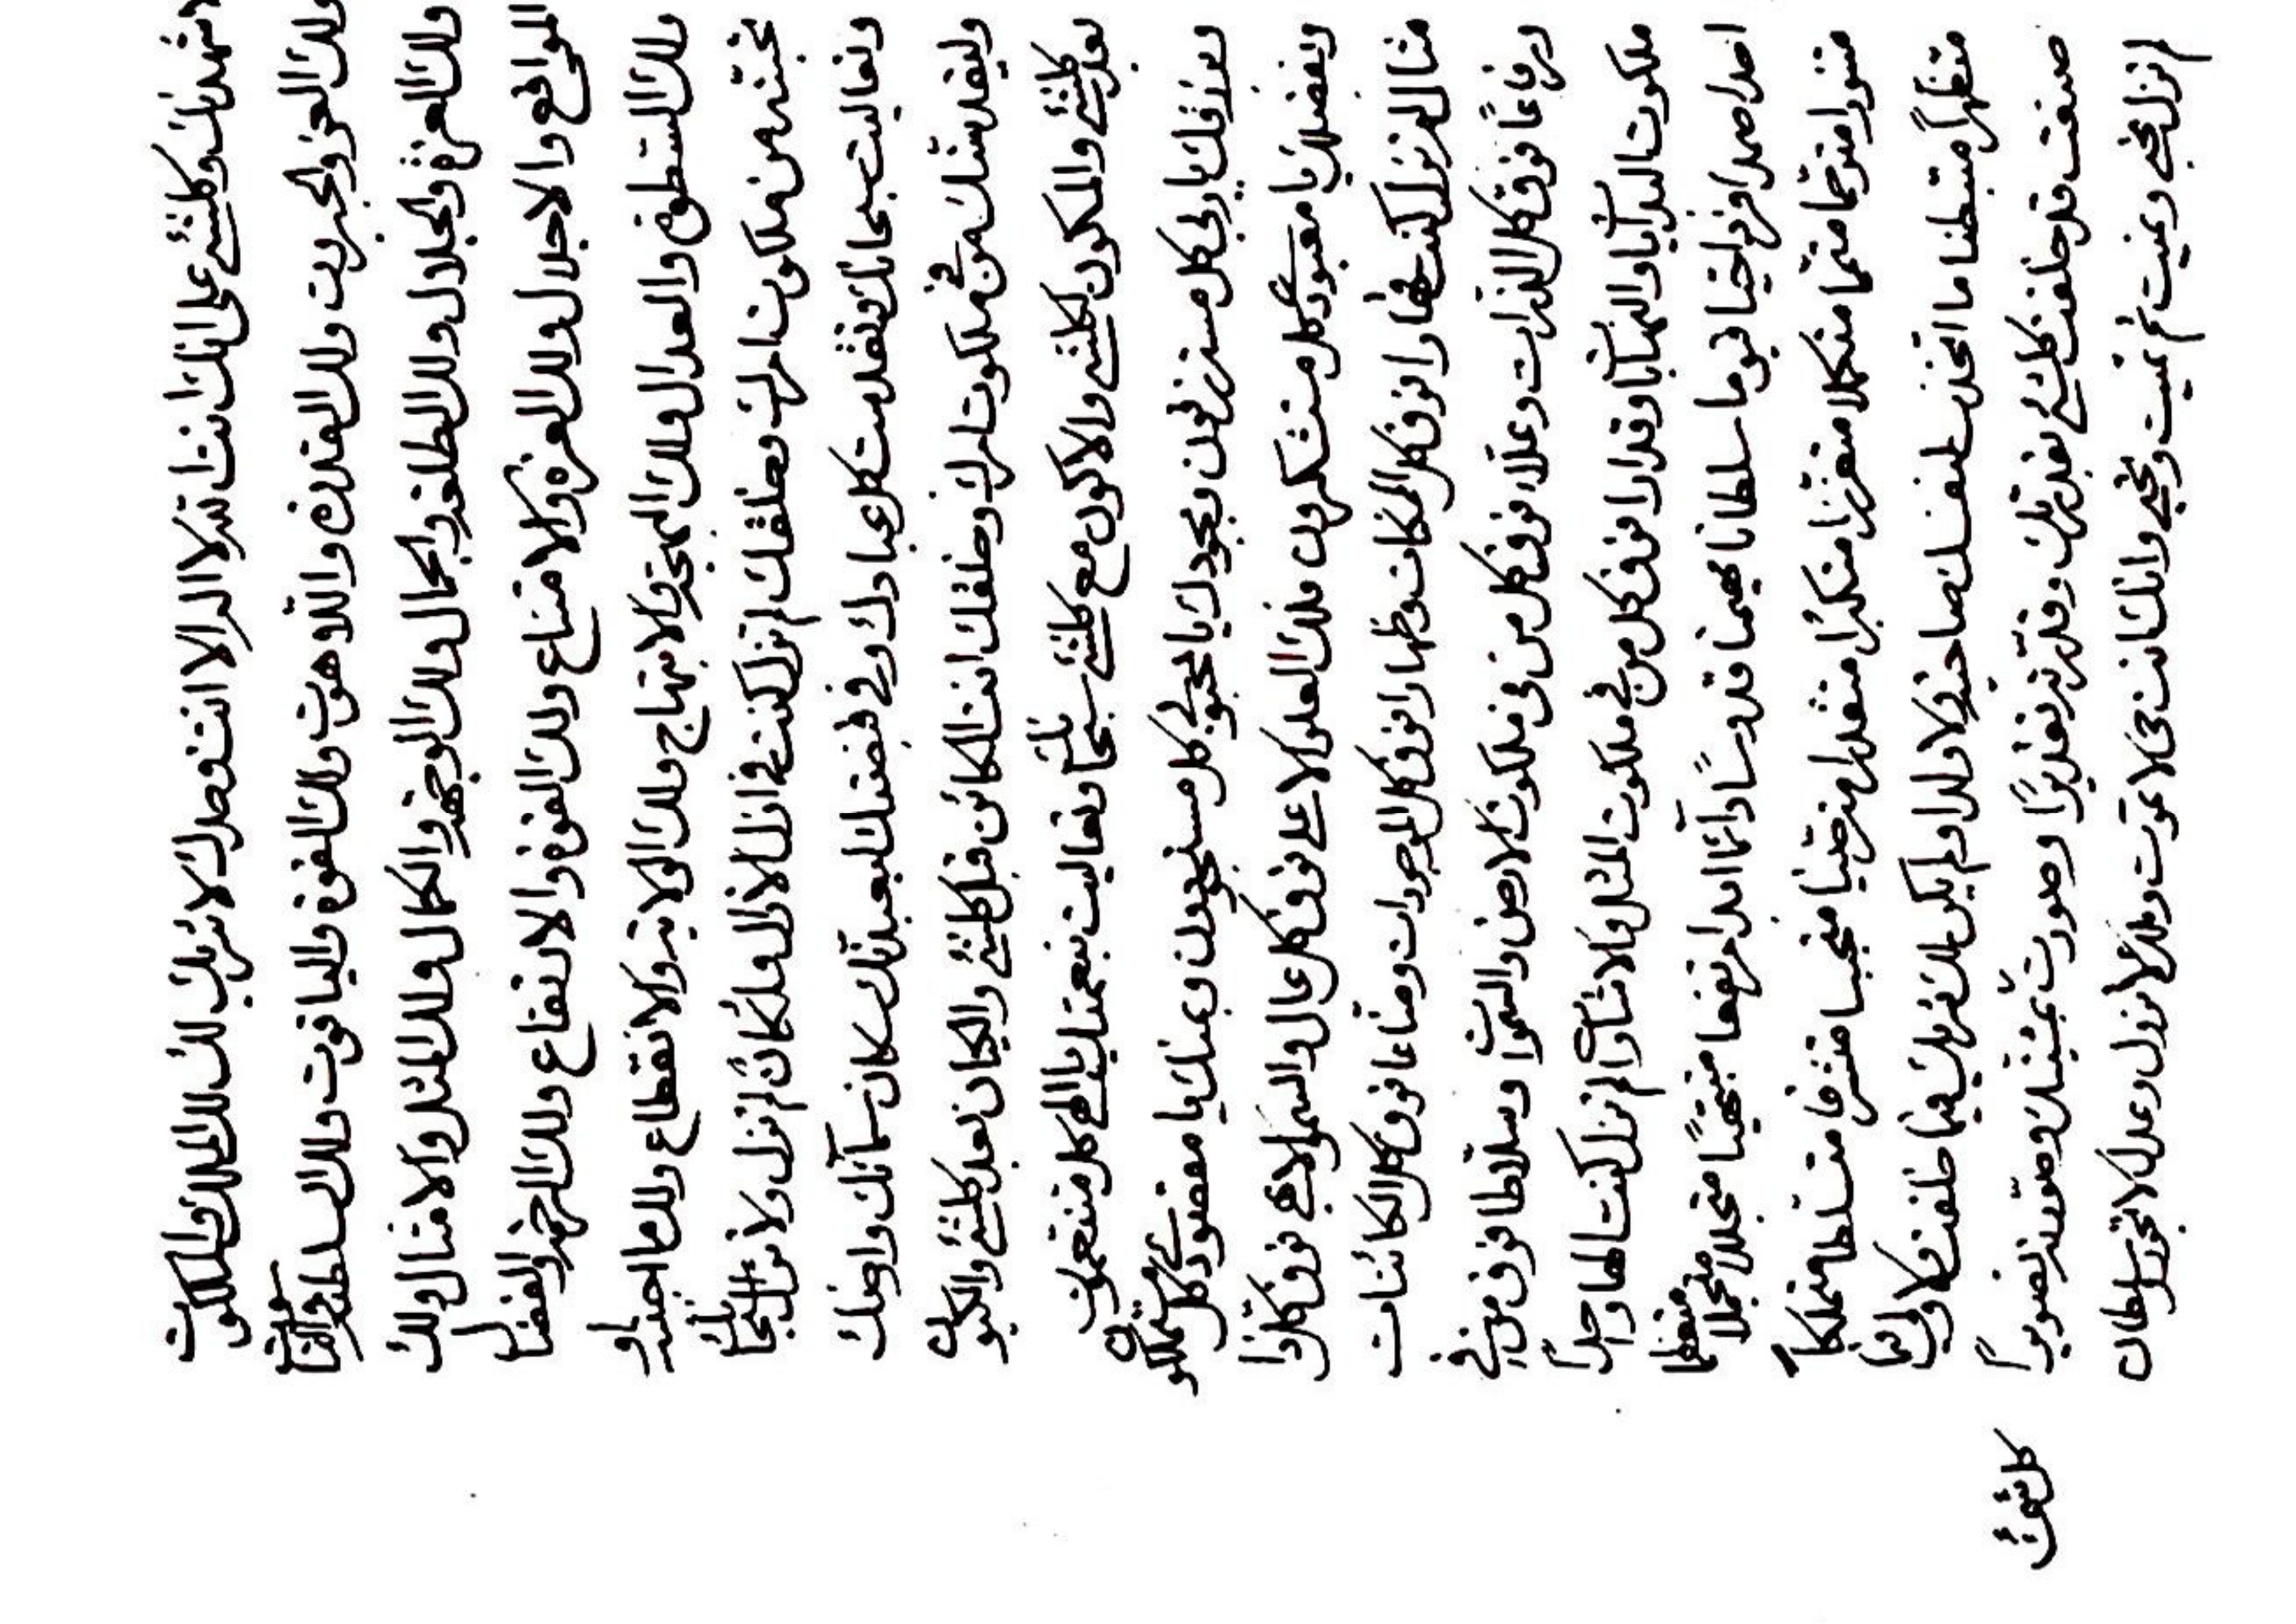 لاشهدنك وكلشئ على انك انت الله لا اله الا انت وحدك لا شريك لك لك الملك والملكوت
ولك العز والجبروت ولك القدرة واللاهوت ولك القوة والياقوت ولك السلطنة والناسوت
ولك العزة والجلال ولك الطلعة والجمال ولك الوجهة والكمال ولك المثل والامثال ولك
المواقع والاجلال ولك العزة والامتناع ولك القوة والارتفاع ولك الرحمة والفضال
ولك السطوة والعدال ولك الولاية والانقطاع ولك ما احببته او
تحبنه من ملكوت امرك وخلقك لم تزل كنت في ازل الازال لم تزل ولا تزال سبحانك
وتعاليت سبحانك وتقدست كل عبادك وفي قبضتك ليعبدنك سكان سمآئك وارضك
وليقدسنك من في ملكوت امرك وخلقك انت الكائن قبل كلشئ والكيان بعد كلشئ والكينون
بعد كلشئ والمكون لكلشئ والاكون مع كلشئ سبحانك وتعاليت بنعمتك يا الهي كل متنعمون
وبرزقك يا ربي كل مسترزقون وبجودك يا محبوبي كل مستجودون وبمنك يا مقصودي كل
وبفضلك يا معبودي كل متشكرون فلك العلو الاعلى فوق كل عال والسمو الابهى فوق كل ذا
مثال لم تزل كنت قهارا فوق كل الممكنات وظهارا فوق كل الموجودات ومناعا فوق كل الكائنات
ورفاعا فوق كل الذرات وعلاء فوق كل من في ملكوت الارض والسموات وسلاطا فوق من في
ملكوت البدايات والنهايات وقدارا فوق كل من في ملكوت المثل والامثال لم تزل كنت الها واحدا
احدا صمدا فردا حيا قيوما سلطانا مهيمنا قدوسا دآئما ابدا مرتفعا مبتهيا متجللا متجملا متعظما
متنورا مترحما متتمما متكملا متعززا متكبرا متقدرا مترضيا متحببا متشرفا متسلطا متملكا
متظهرا متبطنا ما اتخذت لنفسك صاحبة ولا ولدا ولم يكن لك شريك فيما خلقت ولا ولي فيما
صنعت قد خلقت كلشئ بقدرتك وقدرته تقديرا وصورت بمشيتك وصورته تصويرا
لم تزل تحيي وتميت ثم تميت وتحيي وانك انت حي لا تموت وملك لا تزول وعدل لا تجور وسلطان